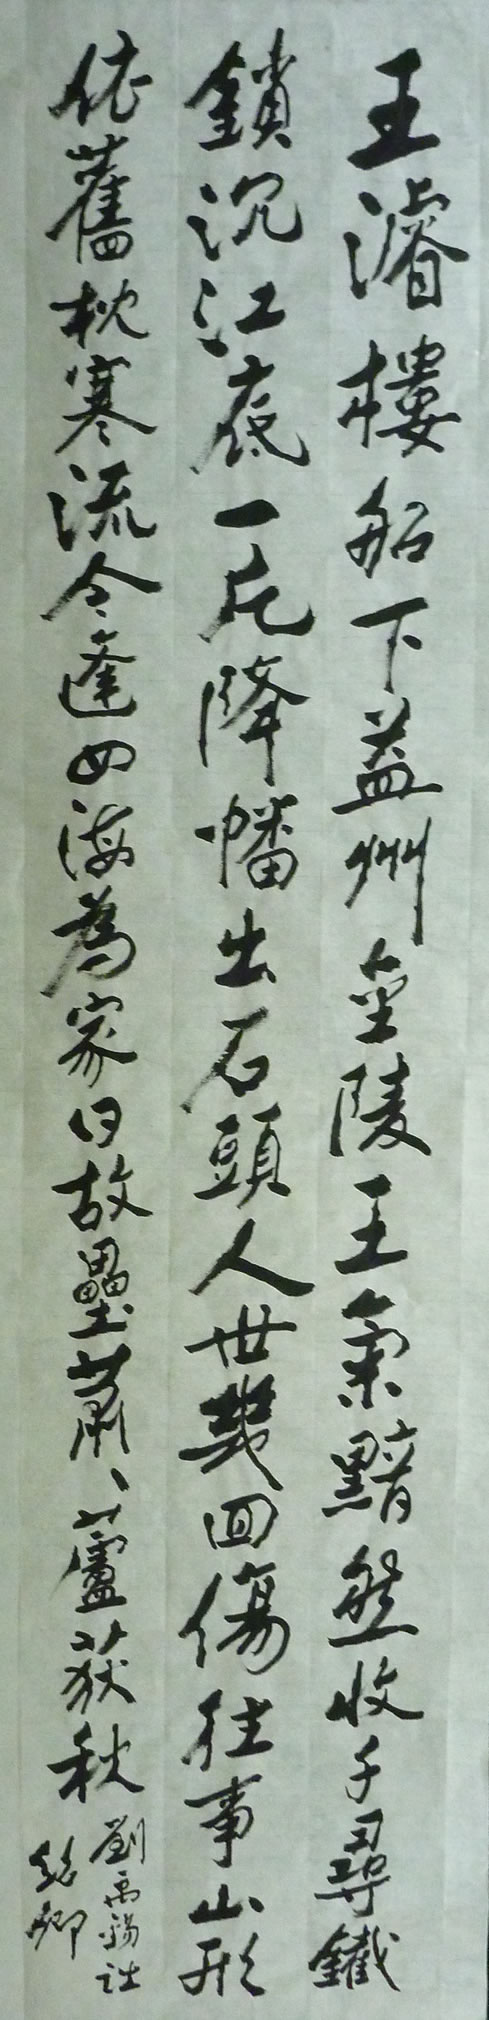 王濬樓船下益州金陵王氣黯然收千尋鐵
鎖沉江底一片降幡出石頭人世幾回傷往事山形
依舊枕寒流今逢四海為家日故壘蕭、蘆荻秋
劉禹錫詩
卿